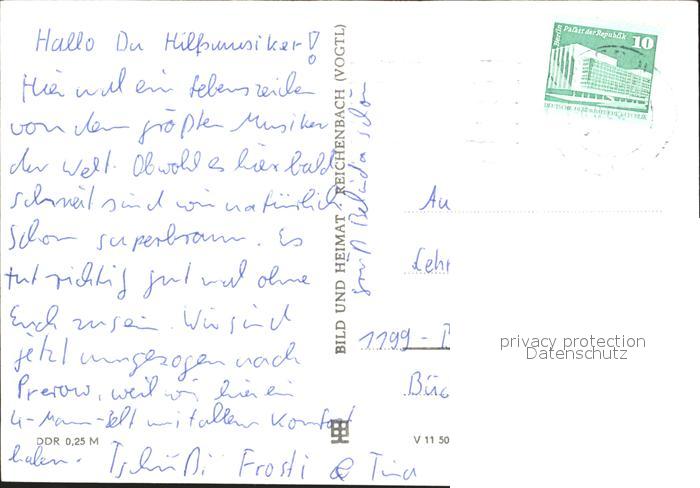 Hallo Du Hilfsmusiker!
Hier mal ein Lebenszeichen
von dem größten Musiker
der Welt. Obwohl es hier bald
schneit sind wir natürlich
schon superbraun. Es
tut richtig gut mal ohne
Euch zu sein. Wir sind
jetzt umgezogen nach
Prerow, weil wir hier ein
4-Mann-Zelt mit allem Komfort
haben. Tschüßi Frosti & Tina
DDR 0,25 M
BILD UND HEIMAT REICHENBACH (VOGTL)
grüß Belinda schön
V 11 50
Berlin Palast der Republik 10
1199 -
privacy protection
Datenschutz